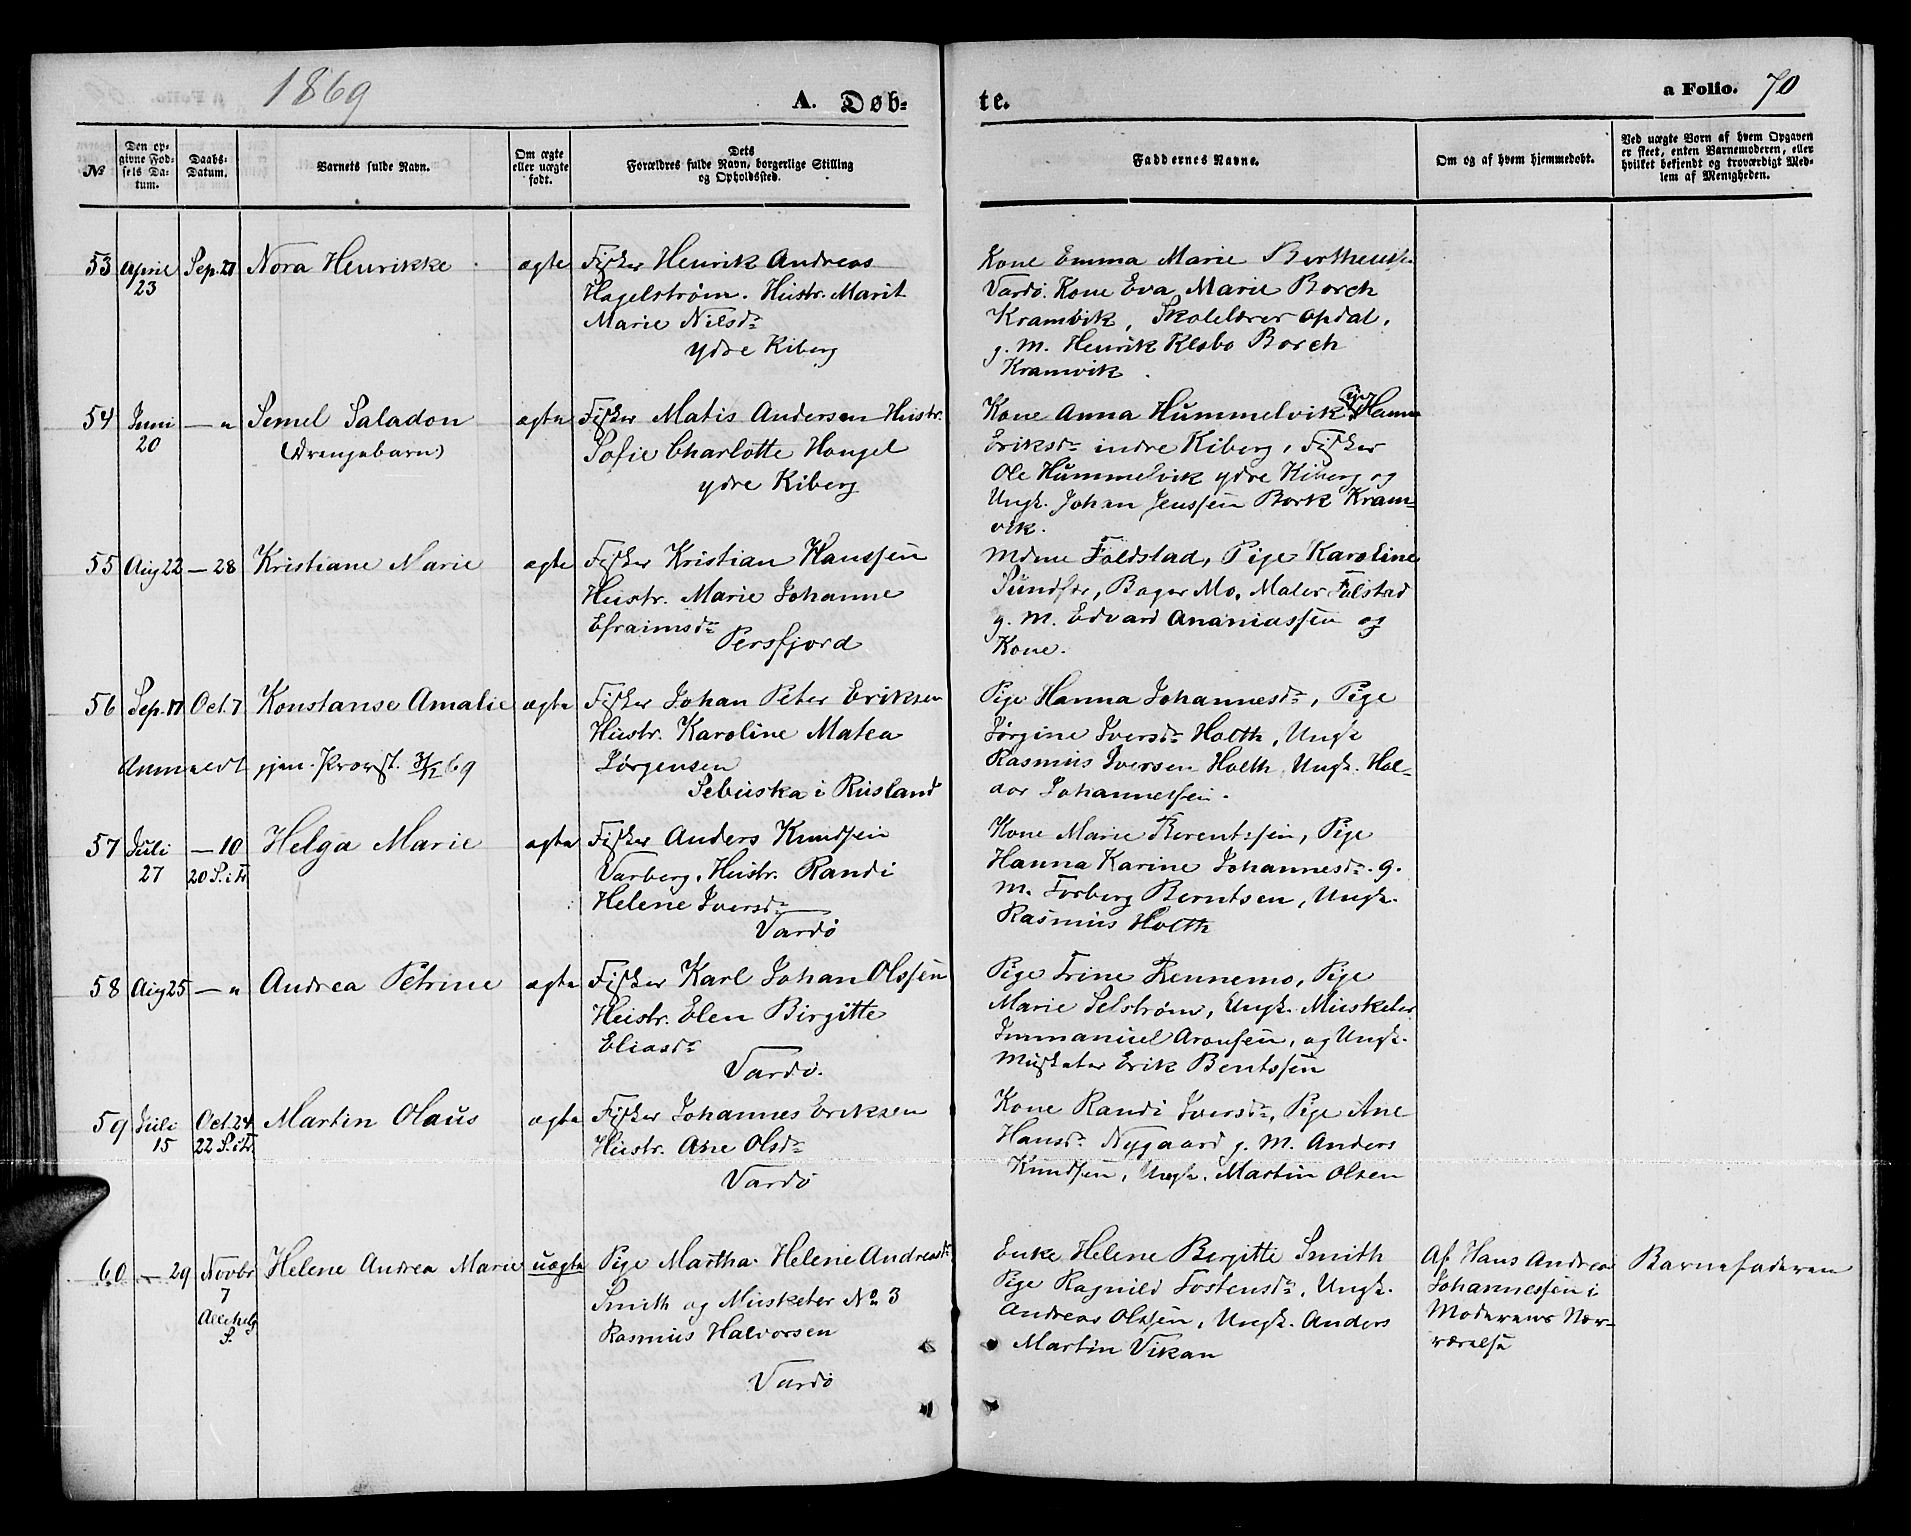 1869
A. Døb-
te.
a Folio. 70
No
Den op-
givne Fød-
sels Da-
tum.
Daabs-
Datum.
Barnets fulde Navn.
Om ægte
eller uægte
født.
Dets
Forældres fulde Navn, borgerlige Stilling
og Opholdssted.
Faddernes Navne.
Om og af hvem hjemmedøbt.
Ved uægte Børn af hvem Opgaven
er skeet, enten Barnemoderen, eller
hvilket bekjendt og troværdigt Med-
lem af Menigheden.
53 April 23 Sep. 27 Nora Henrikke ægte
Fisker Henrik Andreas
Hagelstrøm. Hustr. Marit
Marie Nilsdr
ydre Kiberg
Kone Emma Marie Bertheuss.
Vardø. Kone Eva Marie Borch
Kramvik, Skolelærer Opdal,
g. M. Henrik Klæbo Borch
Kramvik.
54 Juni 20 — " Semel Saladon ægte
(Drengebarn)
Fisker Matis Andersen Hustr.
Sofie Charlotte Hongel
ydre Kiberg
Kone Anna Hummelvik, Pige Hanna
Eriksdr indre Kiberg, Fisker
Ole Hummelvik ydre Kiberg og
Ungk. Johan Jenssen Bork Kram-
vik.
55 Aug 22 — 28 Kristiane Marie ægte
Fisker Kristian Hanssen
Hustr. Marie Johanne
Efraimsdr
Persfjord
Mdme Foldstad, Pige Karoline
Sundfær, Bager Mo, Maler Falstad
g. M. Edvard Ananiassen og
Kone.
56 Sep. 17 Oct. 7 Konstanse Amalie ægte
Anmeldt gjen. Provst. 31/12 69
Fisker Johan Peter Eriksen
Hustr. Karoline Matea
Jørgensen
Sebuska i Rusland
Pige Hanna Johannesdr, Pige
Jørgine Iversdr Holth, Ungk
Rasmus Iversen Holth, Ungk. Hal-
dor Johannessen.
57 Juli 27 — 10 20 S. i Tr Helga Marie ægte
Fisker Anders Knudsen
Varberg, Hustr. Randi
Helene Iversdr
Vardø
Kone Marie Berentssen, Pige
Hanna Karine Johannesdr. g.
M. Forberg Berntsen, Ungk.
Rasmus Holth
58 Aug 25 — " Andrea Petrine ægte
Fisker Karl Johan Olssen
Hustr. Elen Birgitte
Eliasdr
Vardø.
Pige Trine Rennemo, Pige
Marie Selstrøm, Ungk. Musketer
Immanuel Aronsen, og Ungk.
Musketer Erik Bentssen
59 Juli 15 Oct. 24 22 S. i Tr. Martin Olaus ægte
Fisker Johannes Eriksen
Hustr. Ane Olsdr
Vardø
Kone Randi Iversdr, Pige Ane
Hansdr. Nygaard g. M. Anders
Knudsen, Ungk. Martin Olsen
60 — 29 Novbr 7 Allehelg S. Helene Andrea Marie uægte
Pige Martha Helene Andreasdr
Smith og Musketer No 3
Rasmus Halvorsen
Vardø
Enke Helene Birgitte Smith
Pige Ragnild Tostensdr, Ungk.
Andreas Olssen, Ungk. Anders
Martin Vikan
Af Hans Andreas
Johannessen i
Moderens Nær-
værelse
Barnefaderen